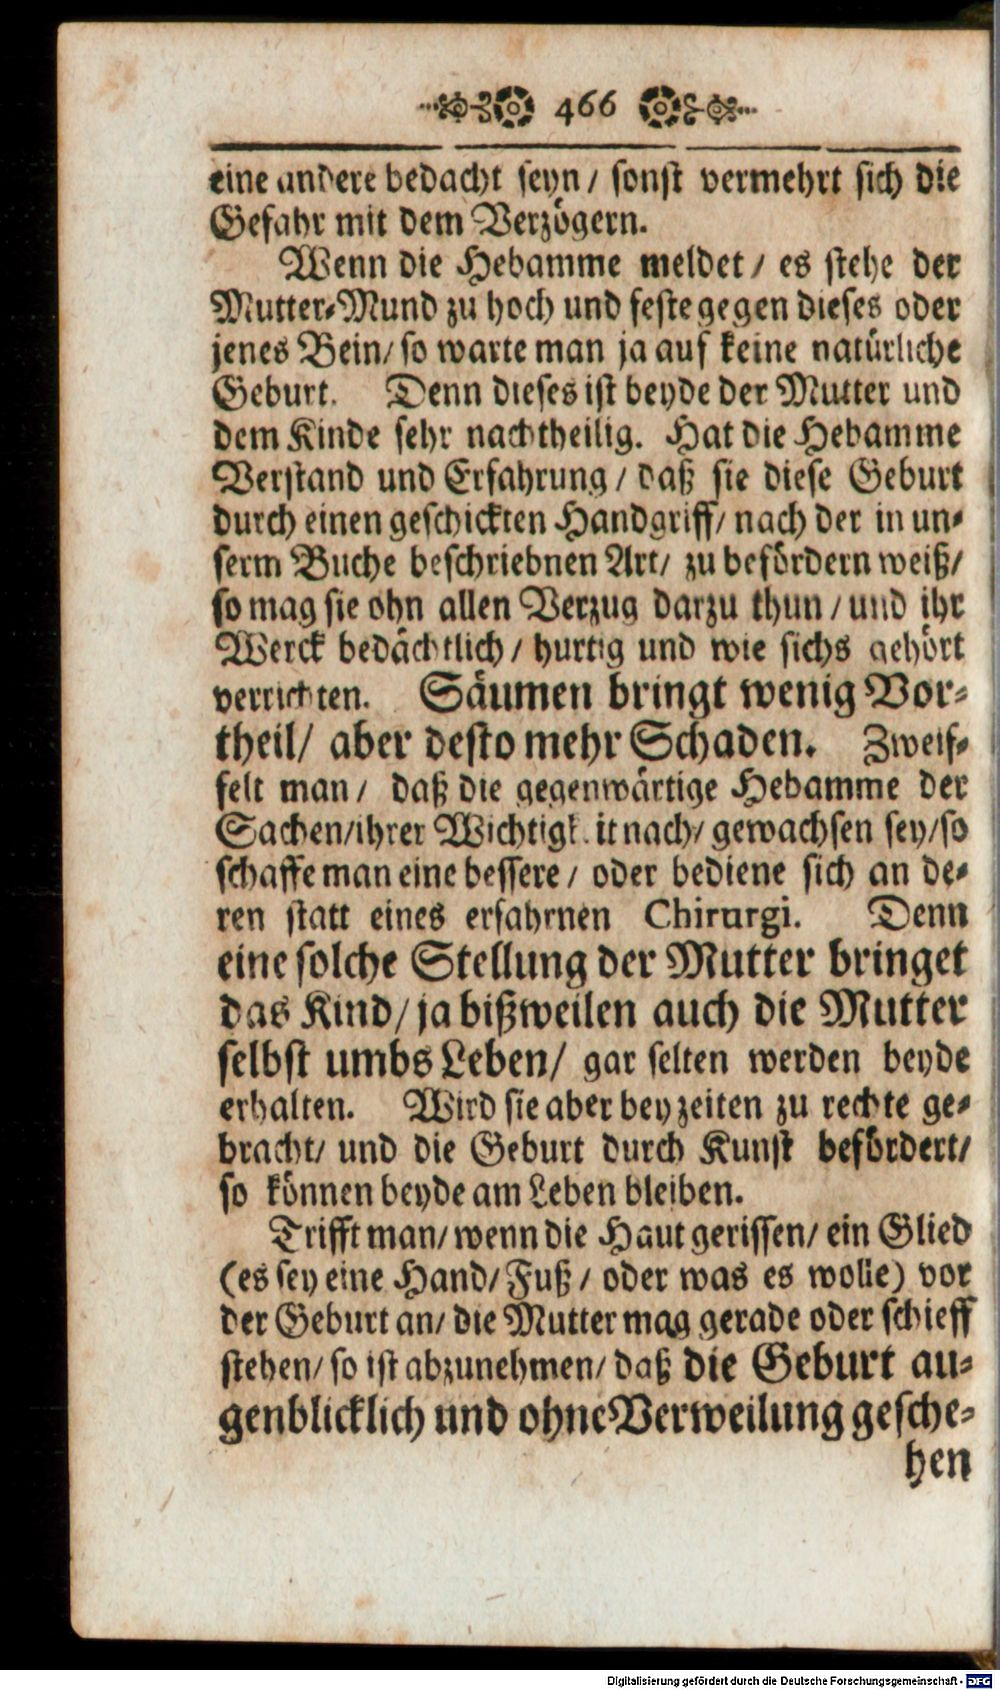 466
eine andere bedacht seyn / sonst vermehrt sich die
Gefahr mit dem Verzögern.
Wenn die Hebamme meldet / es stehe der
Mutter-Mund zu hoch und feste gegen dieses oder
jenes Bein / so warte man ja auf keine natürliche
Geburt. Denn dieses ist beyde der Mutter und
dem Kinde sehr nachtheilig. Hat die Hebamme
Verstand und Erfahrung / daß sie diese Geburt
durch einen geschickten Handgriff / nach der in un-
serm Buche beschriebnen Art / zu befördern weiß /
so mag sie ohn allen Verzug darzu thun / und ihr
Werck bedächtlich / hurtig und wie sichs gehört
verrichten. Säumen bringt wenig Vor-
theil / aber desto mehr Schaden. Zweif-
felt man / daß die gegenwärtige Hebamme der
Sachen / ihrer Wichtigk.it nach / gewachsen sey / so
schaffe man eine bessere / oder bediene sich an de-
ren statt eines erfahrnen Chirurgi. Denn
eine solche Stellung der Mutter bringet
das Kind / ja bißweilen auch die Mutter
selbst umbs Leben / gar selten werden beyde
erhalten. Wird sie aber bey zeiten zu rechte ge-
bracht / und die Geburt durch Kunst befördert /
so können beyde am Leben bleiben.
Trifft man / wenn die Haut gerissen / ein Glied
(es sey eine Hand / Fuß / oder was es wolle) vor
der Geburt an / die Mutter mag gerade oder schieff
stehen / so ist abzunehmen / daß die Geburt au-
genblicklich und ohne Verweilung gesche-
hen
Digitalisierung gefördert durch die Deutsche Forschungsgemeinschaft - DFG